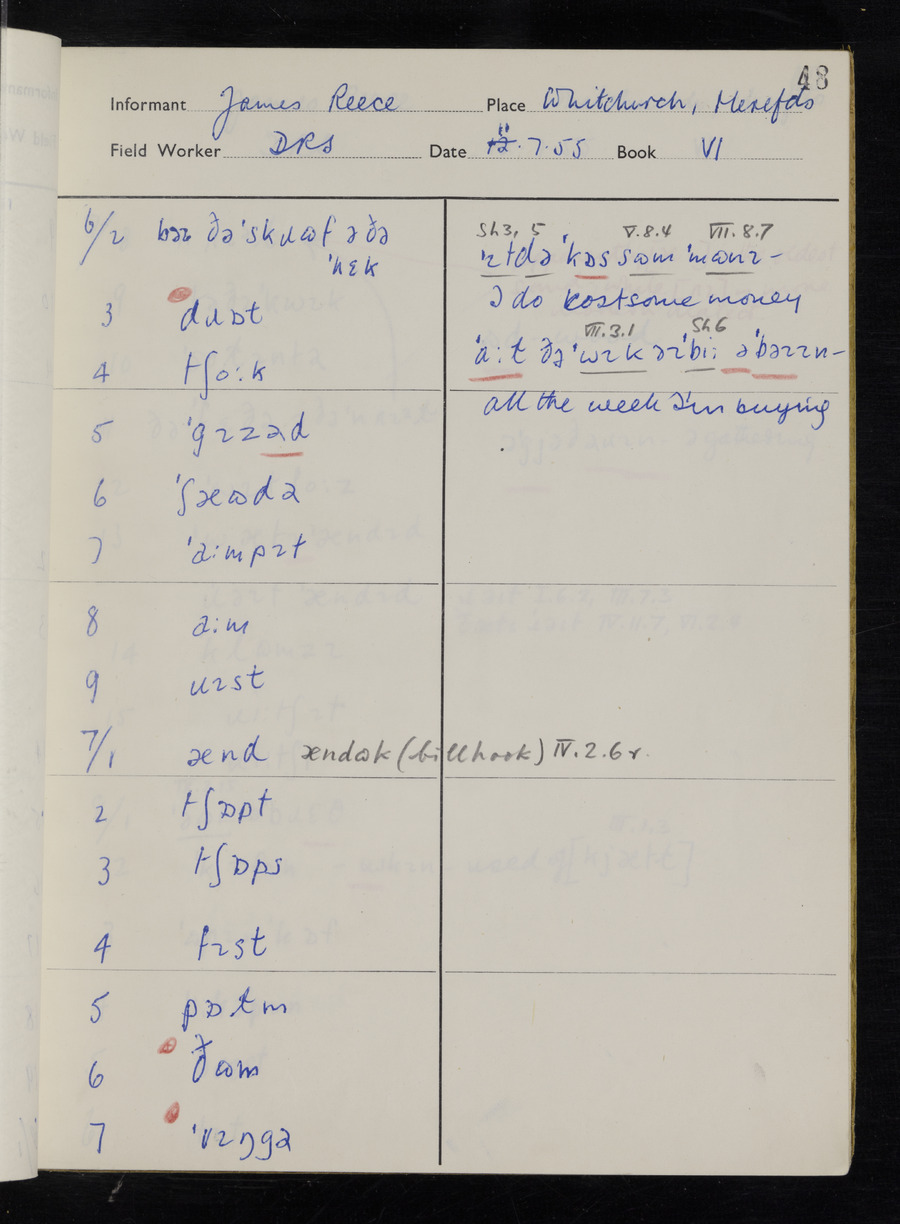 48
Informant James Reece Place Whitchurch, Herefds
Field Worker DRS Date 11.7.55 Book VI
6/2 bəɪ ðə ˈskɹʊf ə ðə
ˈnɛk
3 dɹɒt
4 tʃoːk
5 ˈgɪzəd
6 ˈʃəʊdə
7 ˈaːmpɪt
8 aːm
9 ɹɪst
7/1 ænd ændʊk (billhook) IV.2.6r.
2 tʃɒpt
3 tʃɒps
4 fɪst
5 pɒtm
6 ðʊm
7 ˈvɪŋgə
Sh3, 5 V.8.4 VII.8.7
ɪtdə ˈkɒs sʊm ˈmʊnɪ –
I do cost some money
VII.3.1 Sh6
ˈaːt ðə ˈwɪk əɪˈbiː əˈbəɪɪn –
all the week I'm buying